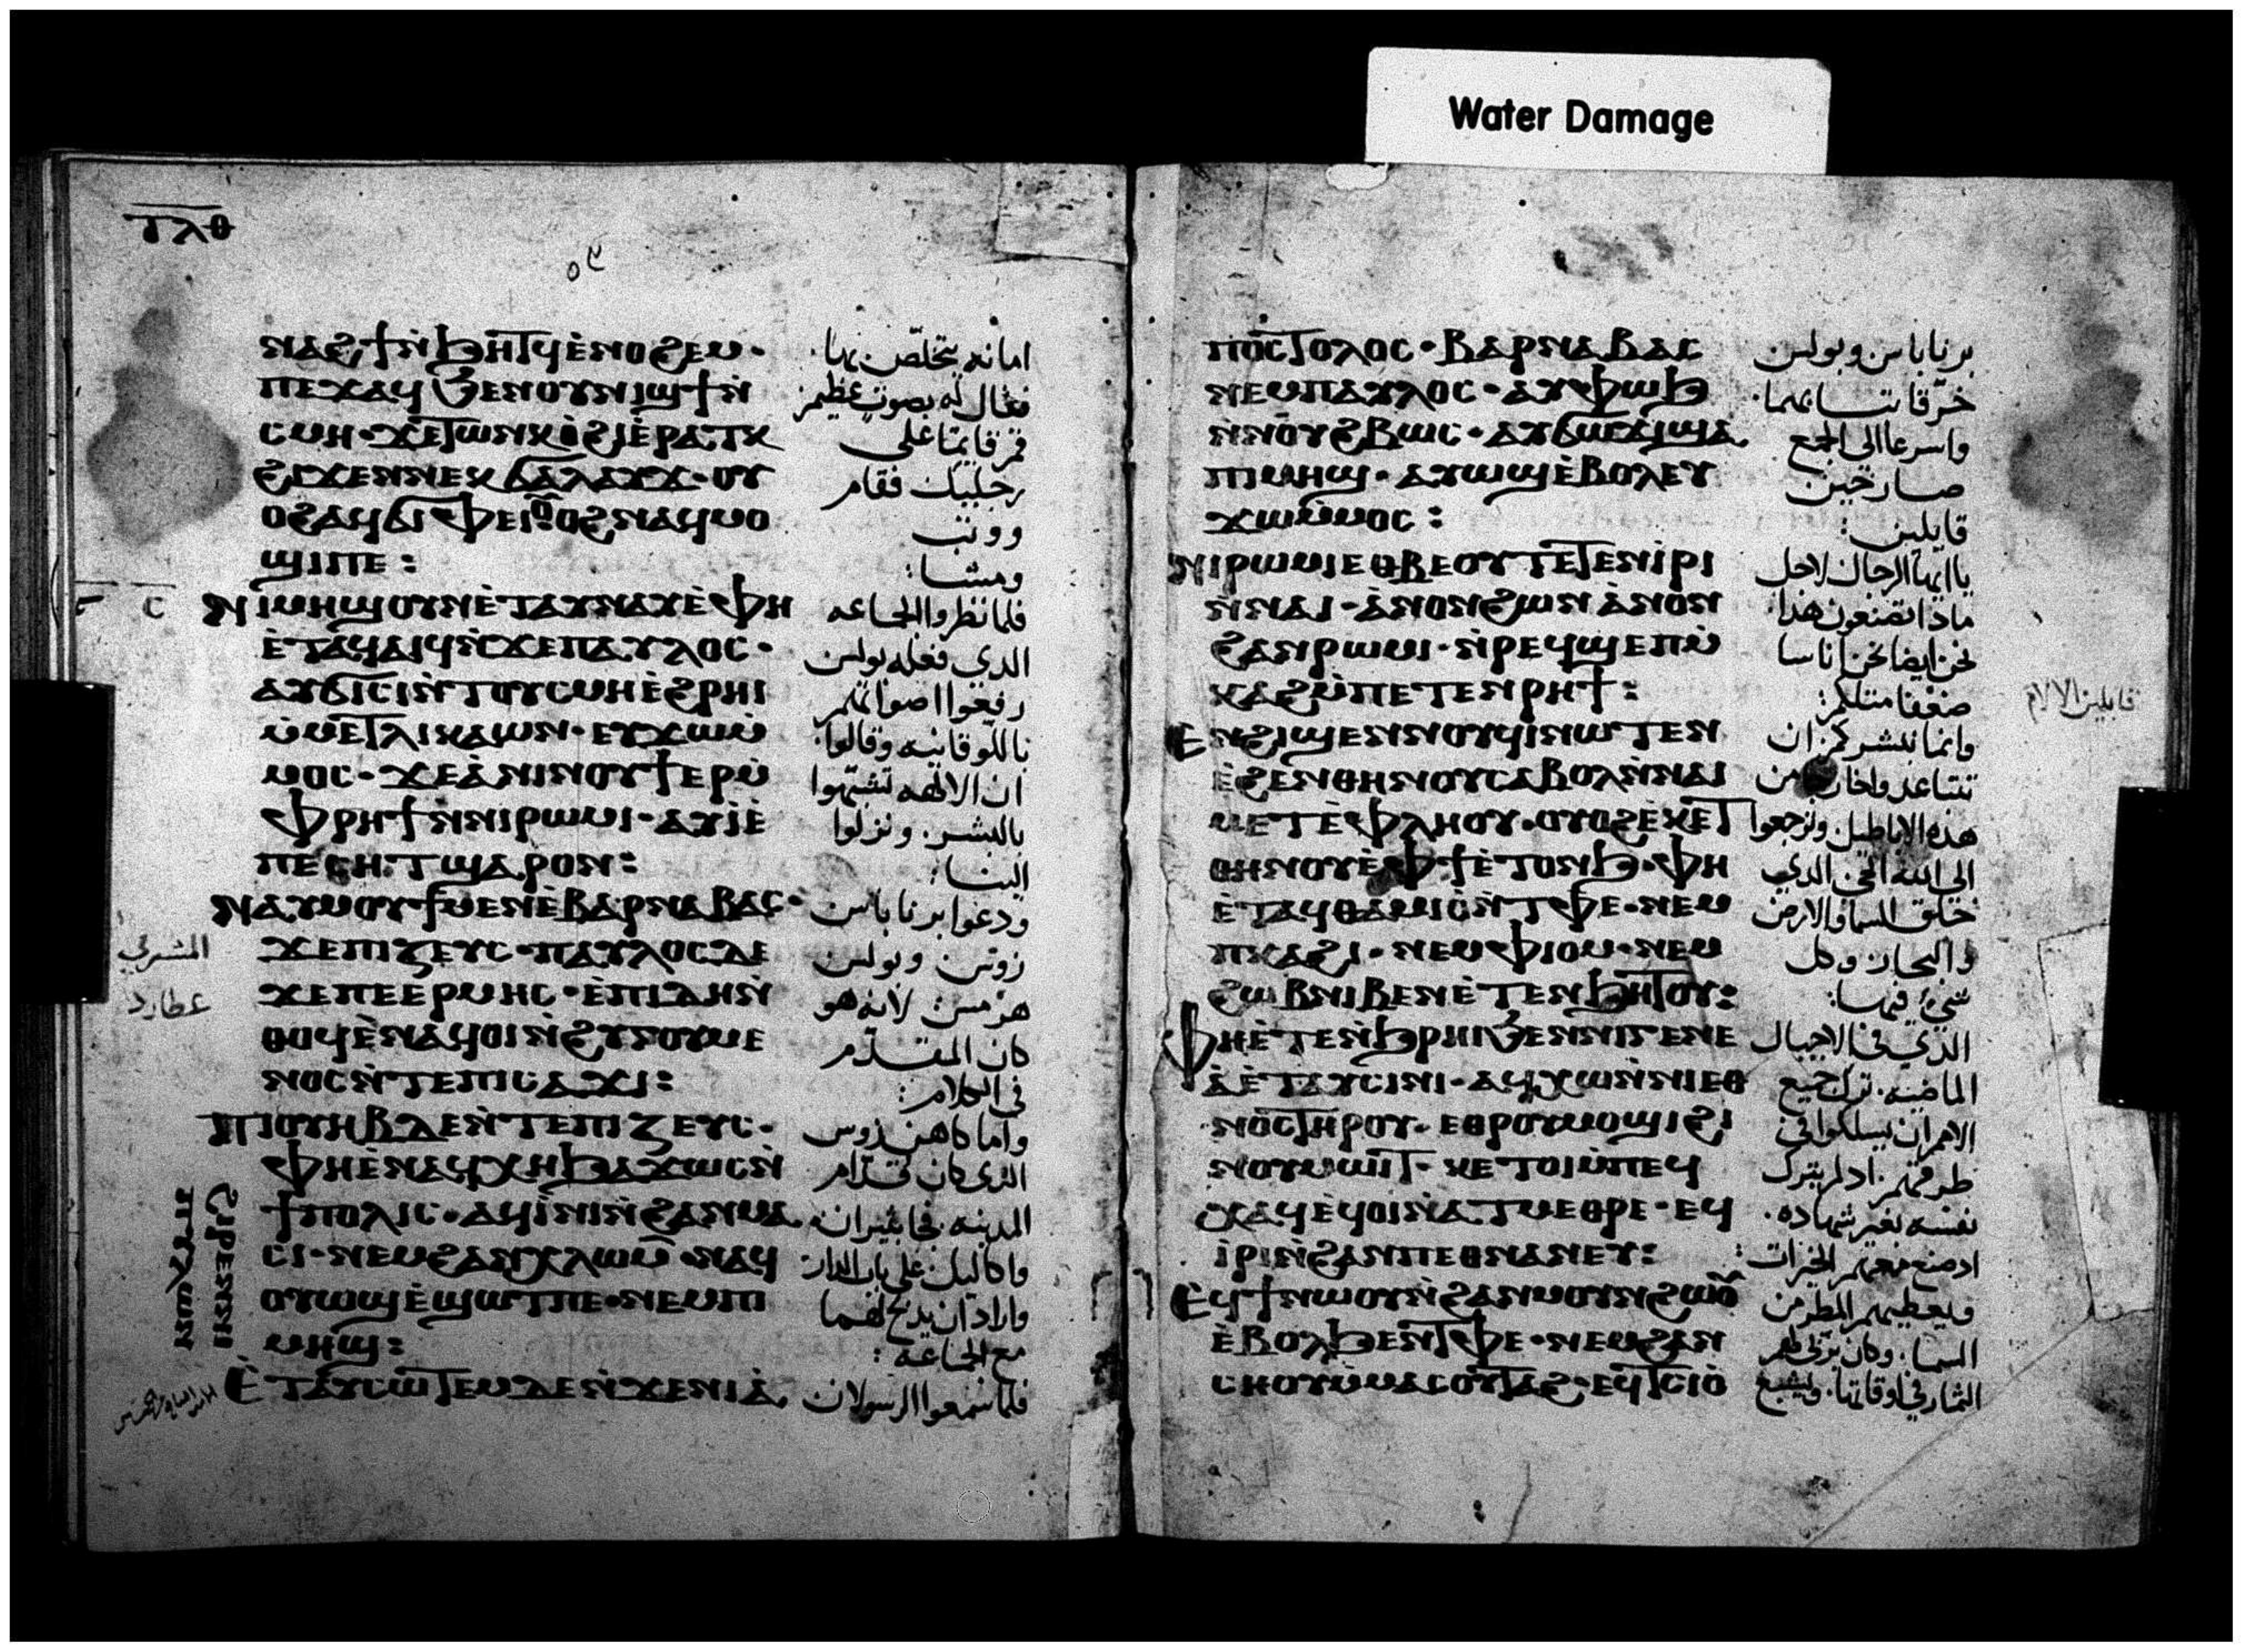 Water Damage
ⲧⲗⲑ
ⲛⲁϩϯⲛ̀ϧⲏⲧϥⲉ̀ⲛⲟϩⲉⲙ·
ⲡⲉϫⲁϥϧⲉⲛⲟⲩⲛⲓϣϯⲛ̀
ⲥⲙⲏ·ϫⲉⲧⲱⲛⲕⲟ̀ϩⲓⲉ̀ⲣⲁⲧⲕ
ϩⲓϫⲉⲛⲛⲉⲕϭⲁⲗⲁⲩϫ·ⲟⲩ
ⲟϩⲁϥϭⲓⲫⲉⲓⲟⲩⲟϩⲛⲁϥⲙⲟ
ϣⲓⲡⲉ:
ⲛⲓⲙⲏϣⲟⲩⲛⲉ̀ⲧⲁⲩⲛⲁⲩⲉ̀ⲫⲏ
ⲉ̀ⲧⲁϥⲁⲓϥⲛ̀ϫⲉⲡⲁⲩⲗⲟⲥ·
ⲁⲩϭⲓⲥⲓⲛ̀ⲧⲟⲩⲥⲙⲏⲉ̀ϩⲣⲏⲓ
ⲙ̀ⲙⲉⲧⲗⲓⲕⲁⲱⲛ·ⲉⲩϫⲱⲙ̀
ⲙⲟⲥ·ϫⲉⲁ̀ⲛⲓⲛⲟⲩϯⲉⲣⲙ̀
ⲫⲣⲏϯⲛ̀ⲛⲓⲣⲱⲙⲓ·ⲁⲩⲓ̀ⲉ̀
ⲡⲉⲥⲏⲧϣⲁⲣⲟⲛ:
ⲛⲁⲩⲙⲟⲩϯⲙⲉⲛⲉ̀ⲃⲁⲣⲛⲁⲃⲁⲥ·
ϫⲉⲡⲓⲍⲉⲩⲥ·ⲡⲁⲩⲗⲟⲥⲇⲉ
ϫⲉⲡⲉⲉⲣⲙⲏⲥ·ⲉ̀ⲡⲓⲇⲏⲛ̀
ⲑⲟϥⲉ̀ⲛⲁϥⲟⲓⲛ̀ϩⲩⲅⲟⲩⲙⲉ
ⲛⲟⲥⲛ̀ⲧⲉⲡⲓⲥⲁϫⲓ:
ⲡⲓⲟⲩⲏⲃⲇⲉⲛ̀ⲧⲉⲡⲓⲍⲉⲩⲥ·
ⲫⲏⲉ̀ⲛⲁϥⲭⲏϧⲁϫⲱⲥⲛ̀
ϯⲡⲟⲗⲓⲥ·ⲁϥⲓ̀ⲛⲓⲛ̀ϩⲁⲛⲙⲁ
ⲥⲓ·ⲛⲉⲙϩⲁⲛⲭⲗⲱⲙ·ⲛⲁϥ
ⲟⲩⲱϣⲉ̀ϣⲱⲧⲡⲉ·ⲛⲉⲙⲡⲓ
ⲙⲏϣ:
ⲉ̀ⲧⲁⲩⲥⲱⲧⲉⲙⲇⲉⲛ̀ϫⲉⲛⲓⲁ̀
ϩⲓⲣⲉⲛⲛⲓ
ⲡⲩⲗⲱⲛ
امانه يتخلّص بها
فقال له بصوت عظيم
قم قايما على
رجليك فقام
ووثب
ومشا:
فلما نظروا الجماعه
الدي فعله بولس
رفعوا اصواتهم
بالقوقانيه وقالوا
ان الالهه تشبهوا
بالبشر. ونزلوا
الينا:
ودعوا برناباس
زوس وبولس
هرمس لانه هو
كان المقدّم
في الكلام:
واما كاهن زوس
الذي كان قدّام
المدينه فجا بثيران
واكاليل على باب الدار
واراد ان يدبح لهما
مع الجماعة:
فلما سمعوا الرسولان
المشتري
عطارد
ⲡⲟⲥⲧⲟⲗⲟⲥ·ⲃⲁⲣⲛⲁⲃⲁⲥ
ⲛⲉⲙⲡⲁⲩⲗⲟⲥ·ⲁⲩⲫⲱϧ
ⲛ̀ⲛⲟⲩϩⲃⲱⲥ·ⲁⲩϭⲱϫⲓϣⲁ
ⲡⲓⲙⲏϣ·ⲁⲩⲱϣⲉ̀ⲃⲟⲗⲉⲩ
ϫⲱⲙ̀ⲙⲟⲥ:
ⲛⲓⲣⲱⲙⲓⲉⲑⲃⲉⲟⲩⲧⲉⲧⲉⲛⲓ̀ⲣⲓ
ⲛ̀ⲛⲁⲓ·ⲁ̀ⲛⲟⲛϩⲱⲛⲁ̀ⲛⲟⲛ
ϩⲁⲛⲣⲱⲙⲓ·ⲛ̀ⲣⲉϥϣⲉⲡⲙ̀
ⲕⲁϩⲙ̀ⲡⲉⲧⲉⲛⲣⲏϯ:
ⲉⲛϩⲓϣⲉⲛⲛⲟⲩϥⲓⲛⲱⲧⲉⲛ
ⲉ̀ϩⲉⲛⲑⲏⲛⲟⲩⲥⲁⲃⲟⲗⲛ̀ⲛⲁⲓ
ⲙⲉⲧⲉ̀ⲫⲗⲏⲟⲩ·ⲟⲩⲟϩⲉ̀ⲕⲉⲧ
ⲑⲏⲛⲟⲩⲉ̀ⲫϯⲉ̀ⲧⲟⲛϧ·ⲫⲏ
ⲉ̀ⲧⲁϥⲑⲁⲙⲓⲟ̀ⲛ̀ⲧⲫⲉ·ⲛⲉⲙ
ⲡⲕⲁϩⲓ·ⲛⲉⲙⲫⲓⲟⲙ·ⲛⲉⲙ
ϩⲱⲃⲛⲓⲃⲉⲛⲉ̀ⲧⲉⲛϧⲏⲧⲟⲩ:
ⲫⲏⲉ̀ⲧⲉⲛ̀ϧⲣⲏⲓϧⲉⲛⲛⲓⲅⲉⲛⲉ
ⲁ̀ⲉ̀ⲧⲁⲩⲥⲓⲛⲓ·ⲁϥⲭⲱⲛ̀ⲛⲓⲉⲑ
ⲛⲟⲥⲧⲏⲣⲟⲩ·ⲉⲑⲣⲟⲩⲙⲟϣⲓϩⲓ
ⲛⲟⲩⲙⲱⲓⲧ·ⲕⲉⲧⲟⲓⲙ̀ⲡⲉϥ
ⲭⲁϥⲉϥⲟⲓⲛ̀ⲁⲧⲙⲉⲑⲣⲉ·ⲉϥ
ⲓⲣⲓⲛ̀ϩⲁⲛⲡⲉⲑⲛⲁⲛⲉⲩ:
ⲉϥϯⲛⲱⲟⲩⲛ̀ϩⲁⲛⲙⲟⲩⲛϩⲱⲟⲩ
ⲉ̀ⲃⲟⲗϧⲉⲛⲧⲫⲉ·ⲛⲉⲙϩⲁⲛ
ⲥⲏⲟⲩⲙ̀ⲙⲁⲥⲟⲩⲧⲁϩ·ⲉϥⲧⲥⲓⲟ̀
برناباس وبولس
خرّقا ثيابهما
واسرعا الى الجمع
صارخين
قايلين:
يا ايها الرجال لاجل
ماذا تصنعون هذا
نحن ايضا نحن اناسا
ضعفا متلكم:
وانما نبشركم ان
هذه الاباطيل وترجعوا
الى الله الحي الدي
خلق السما والارض
والبحار وكل
شيء فيها:
الذي في الاجيال
الماضيه. ترك جميع
الامم ان يسلكوا في
طرقهم. اد لم يترك
نفسه بغير شهاده.
اد صنع معهم الخيرات:
ويعطيهم المطر من
السما. وكان يربي لهم
الثمار في اوقاتها. ويشبع
قابلين الالام